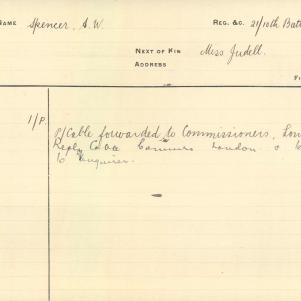 NAME Spencer, A. W. REG. &C. 21/10th Batt
NEXT OF KIN Miss Judell.
ADDRESS
FI
1/P. P/Cable forwarded to Commissioners, Lon
Reply Cable London
to Enquirer.